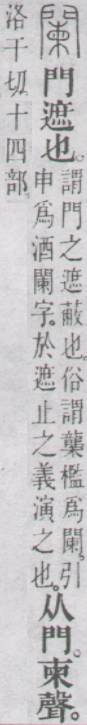 闌門遮也。
謂門之遮蔽也。俗謂㰍檻爲闌。引
申爲酒闌字。於遮止之義演之也。
从門。柬聲。
洛干切。十四部。